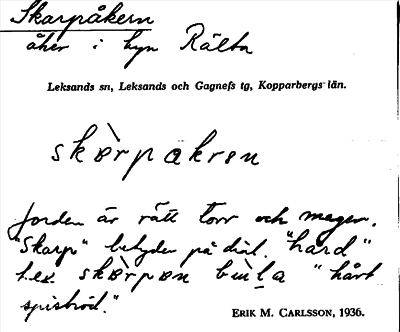 Skarpåkern
åker i byn Rälta
Leksands sn, Leksands och Gagnefs tg, Kopparbergs län.
skàrpåkrən
Jorden är rätt torr och mager.
"Skarp" betyder på dial. "hård"
t.ex. skàrpən "hårt
spisbröd."
ERIK M. CARLSSON, 1936.